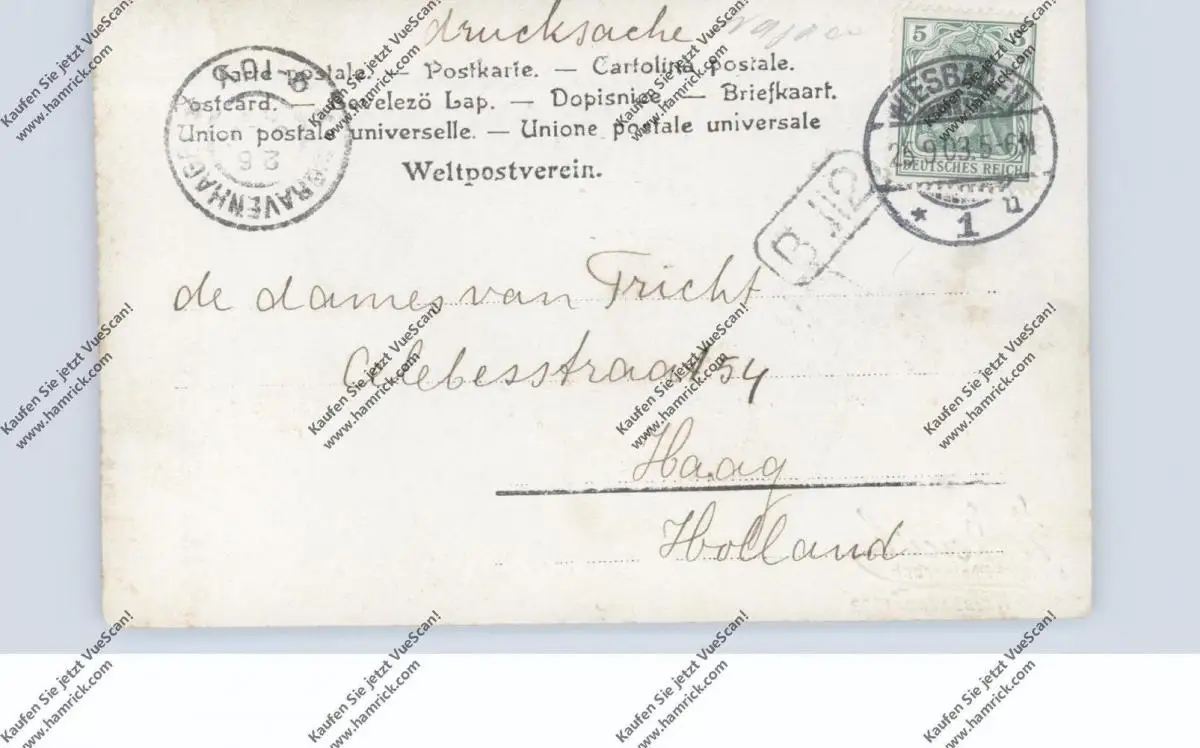 drucksache
Carte postale. — Postkarte. — Cartolina postale.
Postcard. — Levelezö Lap. — Dopisnice — Briefkaart.
Union postale universelle. — Unione postale universale
Weltpostverein.
5
DEUTSCHES REICH
WIESBADEN
25.9.03.5-6N
* 1 u
GRAVENHAGE
8-10V
26
B 112
de dames van Tricht
straat 54
Haag
Holland
Kaufen Sie jetzt VueScan!
www.hamrick.com